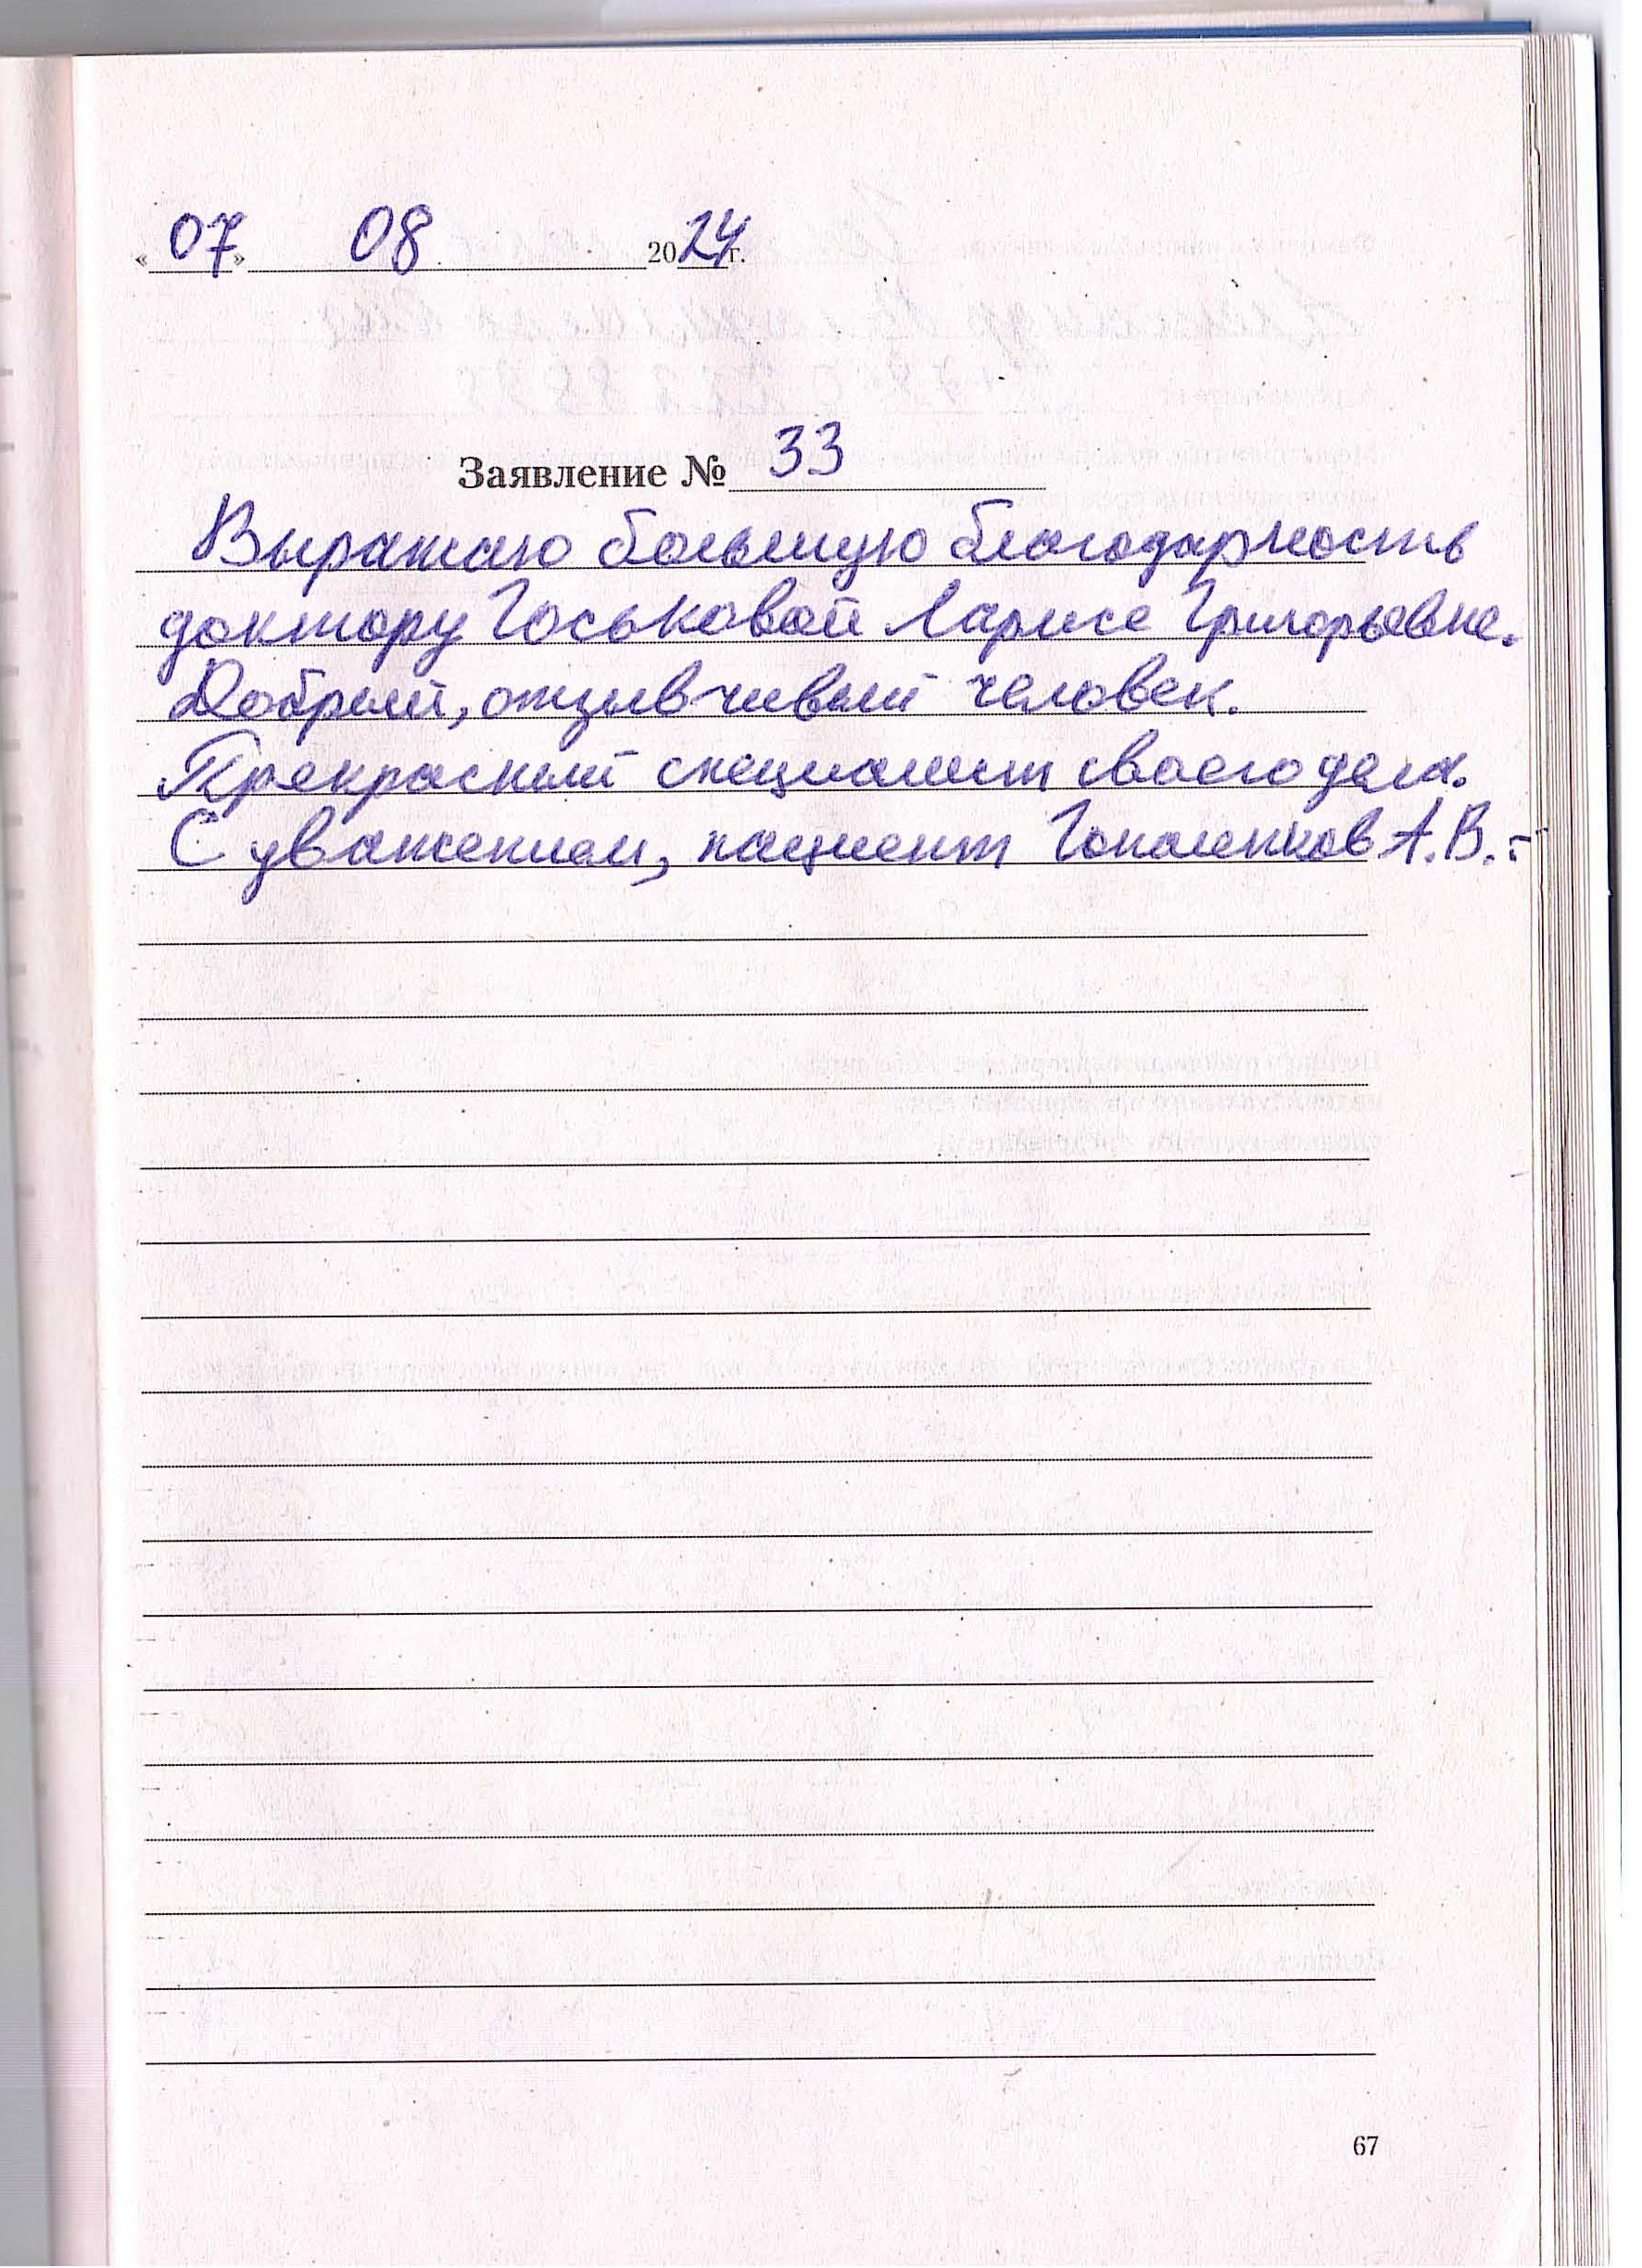 «07» 08 2024 г.
Заявление № 33
Выражаю большую благодарность
доктору Госьковой Ларисе Григорьевне.
Добрый, отзывчивый человек.
Прекрасный специалист своего дела.
С уважением, пациент А.В.
67